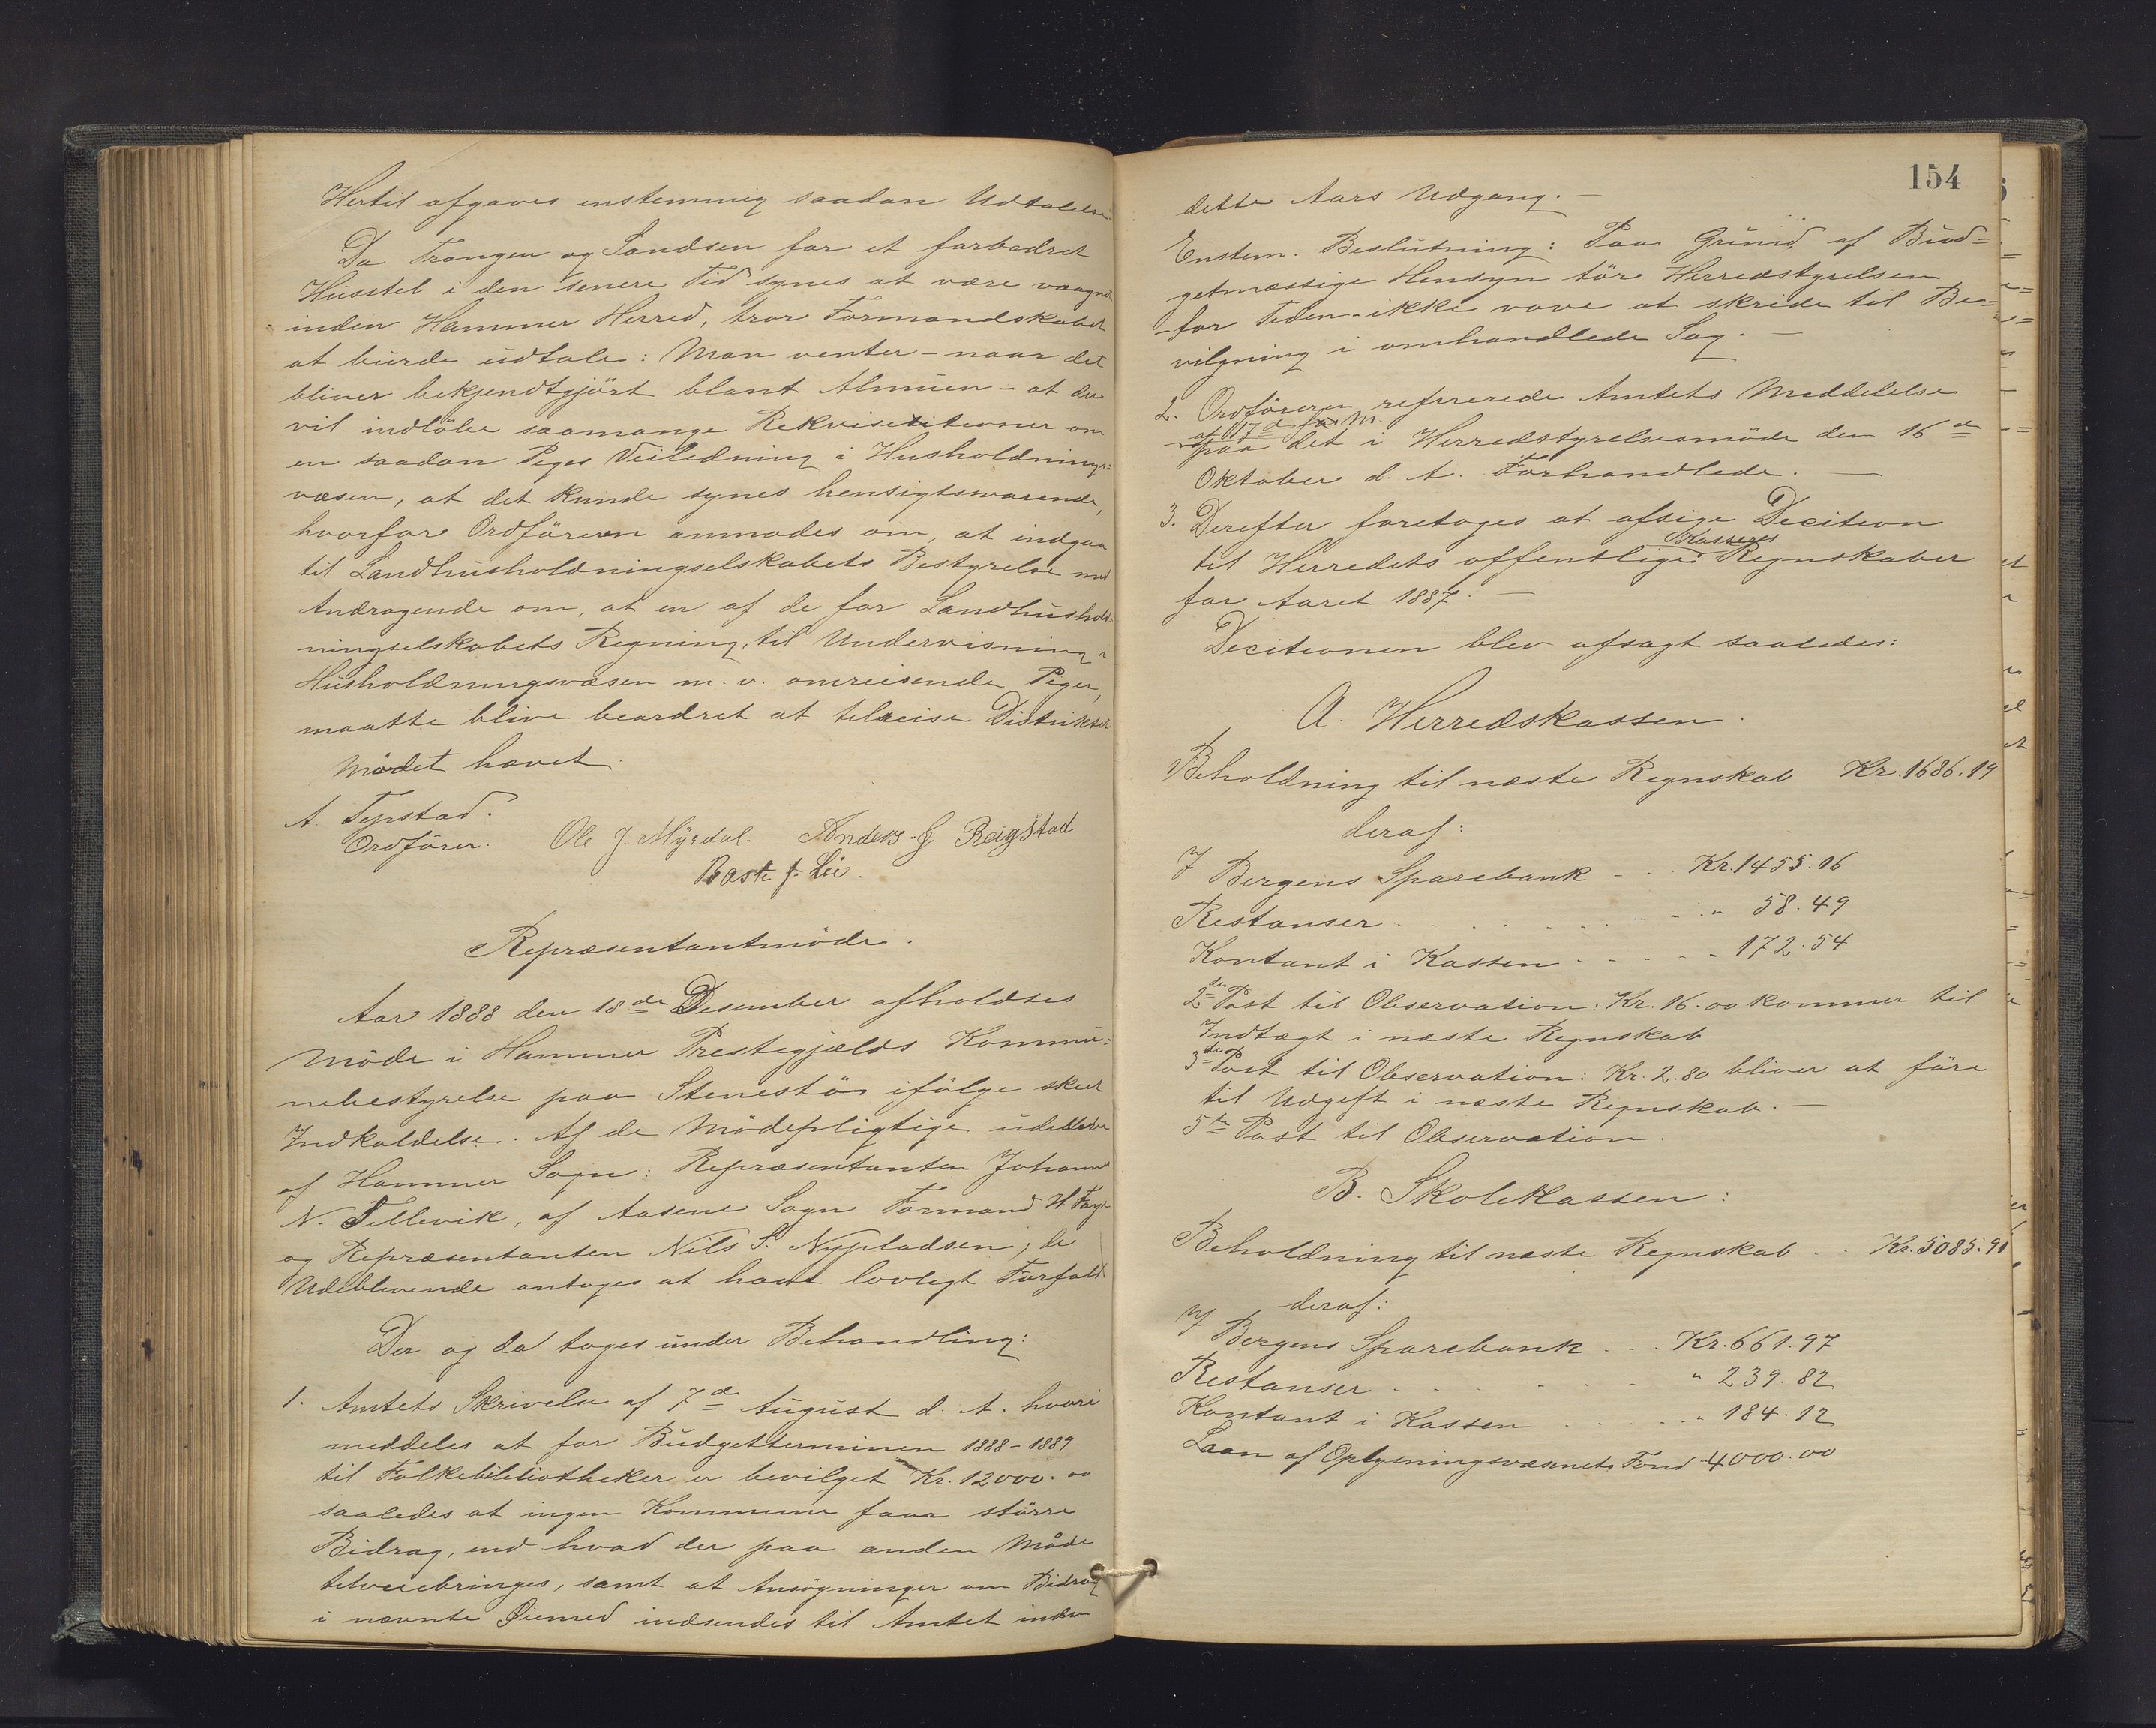 Hertil afgaves enstemmig saadan Udtalelse
Da Trangen og Sandsen for et forbedret
Husstel i den senere Tid synes at være vaagnet
inden Hammer Herred, tror Formandskabet
at burde udtale: Man venter – naar det
bliver bekjendtgjört blant Almuen – at der
vil indlöbe saamange Rekvisetitioner om
en saadan Piges Veiledning i Husholdnings=
væsen, at det kunde synes hensigtsvarende,
hvorfor Ordföreren anmodes om, at indgaa
til Landhusholdningselskabets Bestyrelse med
Andragende om, at en af de for Landhushold=
ningselskabets Regning, til Undervisning i
Husholdningsvæsen m. v. omreisende Piger,
maatte blive beordret at tilreise Distriktet
Mödet hævet.
A. Tepstad.
Ordförer. Ole J. Myrdal. Anders J Reigstad
Baste J. Lie.
Repræsentantmöde.
Aar 1888 den 18de Desember afholdtes
Möde i Hammer Prestegjælds Kommu=
nebestyrelse paa Stenestö ifölge skeet
Indkaldelse. Af de Mödepligtige udebleve
af Hammer Sogn: Repræsentanten Johannes
N. Tellevik, af Aasene Sogn Formand H. Faye
og Repræsentanten Nils S. Nypladsen; de
Udeblevende antoges at have lovligt Forfald.
Der og da toges under Behandling:
1. Amtets Skrivelse af 7de August d. A. hvori
meddeles at for Budgetterminen 1888-1889
til Folkebibliotheker er bevilget Kr. 12000.00
saaledes at ingen Kommune faar större
Bidrag, end hvad der paa anden Måde
tilveiebringes, samt at Ansögninger om Bidrag
i nævnte Øiemed indsendes til Amtet inden
154
dette Aars Udgang. –
Enstem. Beslutning: Paa Grund af Bud=
getmæssige Hensyn tör Herredstyrelsen
– for Tiden – ikke vove at skride til Be=
vilgning i omhandlede Sag. –
2. Ordföreren refirerede Amtets Meddelelse
af 17de f. M.
paa det i Herredstyrelsesmöde den 16de
Oktober d. A. Forhandlede. –
3. Derefter foretoges at afsige Decition
Kasseres
til Herredets offentlige Regnskaber
for Aaret 1887. –
Decitionen blev afsagt saaledes:
A. Herredskassen.
Beholdning til næste Regnskab Kr. 1686.19
deraf:
I Bergens Sparebank - - . Kr. 1455.16
Restanser . . . . . . . - - " 58.49
Kontant i Kassen - - - - - " 172.54
2den Post til Observation: Kr. 16.00 kommer til
Indtægt i næste Regnskab
3die Post til Observation: Kr. 2.80 bliver at före
til Udgift i næste Regnskab. –
5te Post til Observation.
B. Skolekassen:
Beholdning til næste Regnskab . . Kr. 5085.91
deraf:
I Bergens Sparebank . . . Kr. 661.97
Restanser . . . . . . " 239.82
Kontant i Kassen . . . . " 184.12
Laan af Oplysningsvæsnets Fond " 4000.00